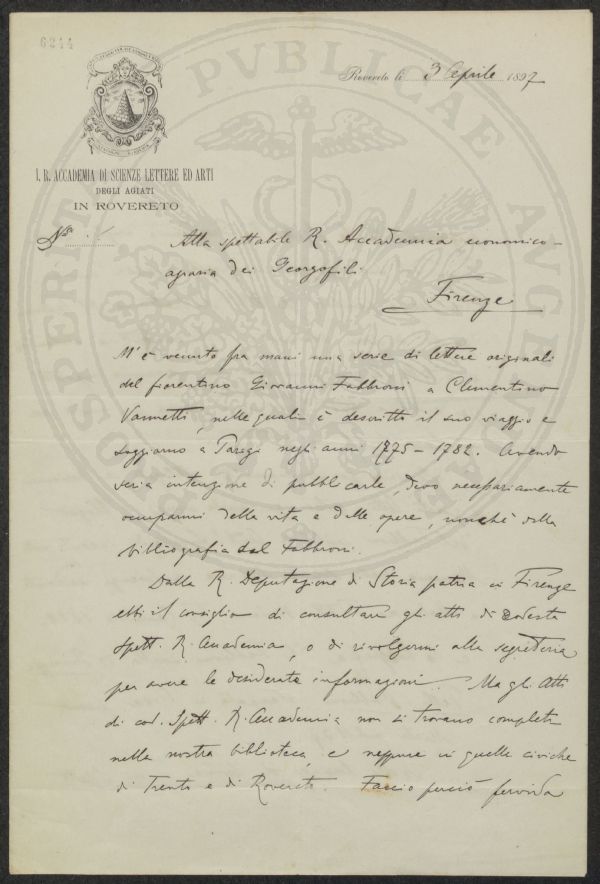 6244
Rovereto li 3 Aprile 1897
I. R. ACCADEMIA DI SCIENZE LETTERE ED ARTI
DEGLI AGIATI
IN ROVERETO
N.ro
Alla spettabile R. Accademia economico-
agraria dei Georgofili
Firenze
M'è venuto fra mani una serie di lettere originali
del fiorentino Giovanni Fabbroni a Clementino
Vannetti, nelle quali è descritto il suo viaggio e
soggiorno a Parigi negli anni 1775-1782. Avendo
seria intenzione di pubblicarle, devo necessariamente
occuparmi della vita e delle opere, nonchè della
bibliografia del Fabbroni.
Dalla R. Deputazione di Storia patria in Firenze
ebbi il consiglio di consultare gli atti di codesta
spett. R. Accademia, o di rivolgermi alla segreteria
per avere le desiderate informazioni. Ma gli Atti
di cod. Spett. R. Accademia non si trovano completi
nella nostra biblioteca, e neppure in quelle civiche
di Trento e di Rovereto. Faccio perciò fervida
PVBLICAE
PROSPERITATI
AVGE